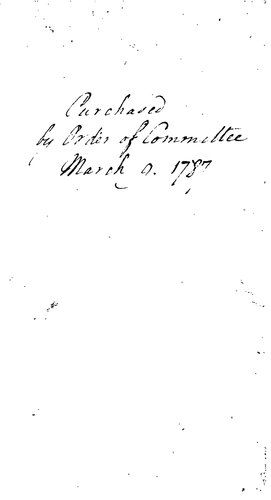 Purchased
by Order of Committee
March 9. 1787